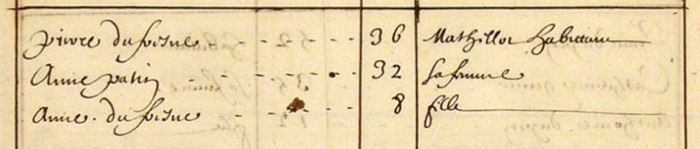 pierre dufresne 36 Mathellot habittant
Anne patin 32 sa femme
Anne. dufresne 8 fille